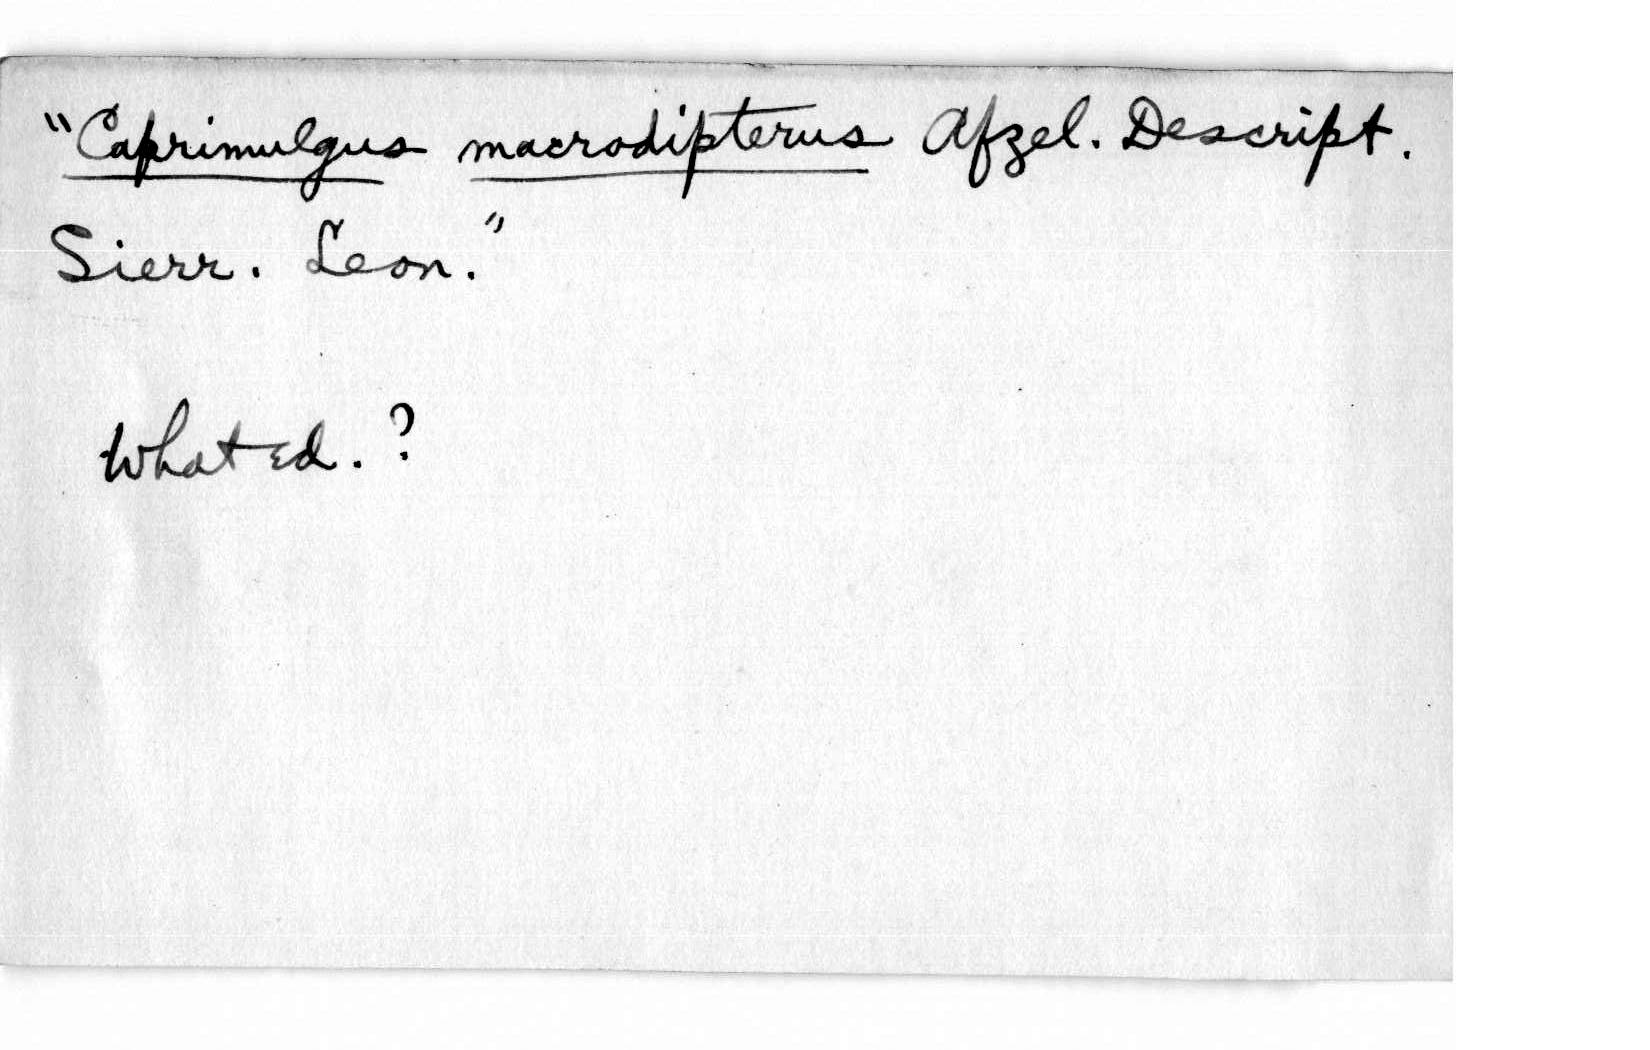 "Caprimulgus macrodipterus Afzel. Descript.
Sierr. Leon."
What ed. ?